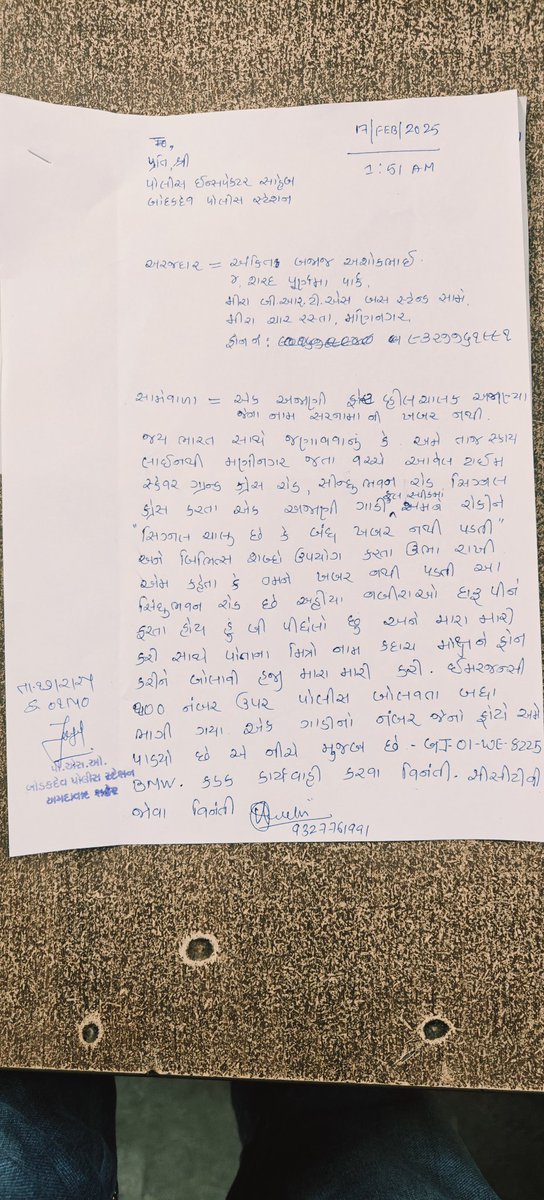 17/FEB/2025
1:51 AM
પ્રતિ, શ્રી
પોલીસ ઈન્સપેકટર સાહેબ
બોડકદેવ પોલીસ સ્ટેશન
અરજદાર = અંકિત બજાજ અશોકભાઈ.
શરદ પુર્ણિમા પાર્ક
મીરા બી.આર.ટી.એસ બસ સ્ટેન્ડ સામે.
મીરા ચાર રસ્તા, મણિનગર
ફોન નં: ૯૩૨૭૭૬૧૯૯૧
સામેવાળા = એક અજાણી ફોર વ્હીલ ચાલક અજાણ્યા
જેના નામ સરનામા ની ખબર નથી.
જય ભારત સાથે જણાવવાનું કે અમે તાજ સ્કાય
લાઈનથી મણીનગર જતા વચ્ચે આવેલ ટાઈમ
સ્કેવર ગ્રાન્ડ ક્રોસ રોડ, સીન્ધુભવન રોડ સિગ્નલ
ક્રોસ કરતા એક અજાણી ગાડી ફુલ સ્પીડમાં અમને રોકીને
"સિગ્નલ ચાલુ છે કે બંધ ખબર નથી પડતી"
અને બિભિત્સ શબ્દો ઉપયોગ કરતા ઉભા રાખી
એમ કહેતા કે તમને ખબર નથી પડતી આ
સિંધુભવન રોડ છે અહીયા નબીરાઓ દારૂ પીને
ફરતા હોય હું બી પીધેલો છુ અને મારા મારી
કરી સાથે પોતાના મિત્રો નામ કદાચ મોધુને ફોન
કરીને બોલાવી હજી મારા મારી કરી. ઈમરજન્સી
૧૦૦ નંબર ઉપર પોલીસ બોલવતા બધા
ભાગી ગયા. એક ગાડીનો નંબર જેનો ફોટો અમે
પાડયો છે એ નીચે મુજબ છે - GJ-01-WE-8225
BMW. કડક કાર્યવાહી કરવા વિનંતી. સીસીટીવી
જોવા વિનંતી
9327761991
પી.એસ.ઓ.
બોડકદેવ પોલીસ સ્ટેશન
અમદાવાદ શહેર